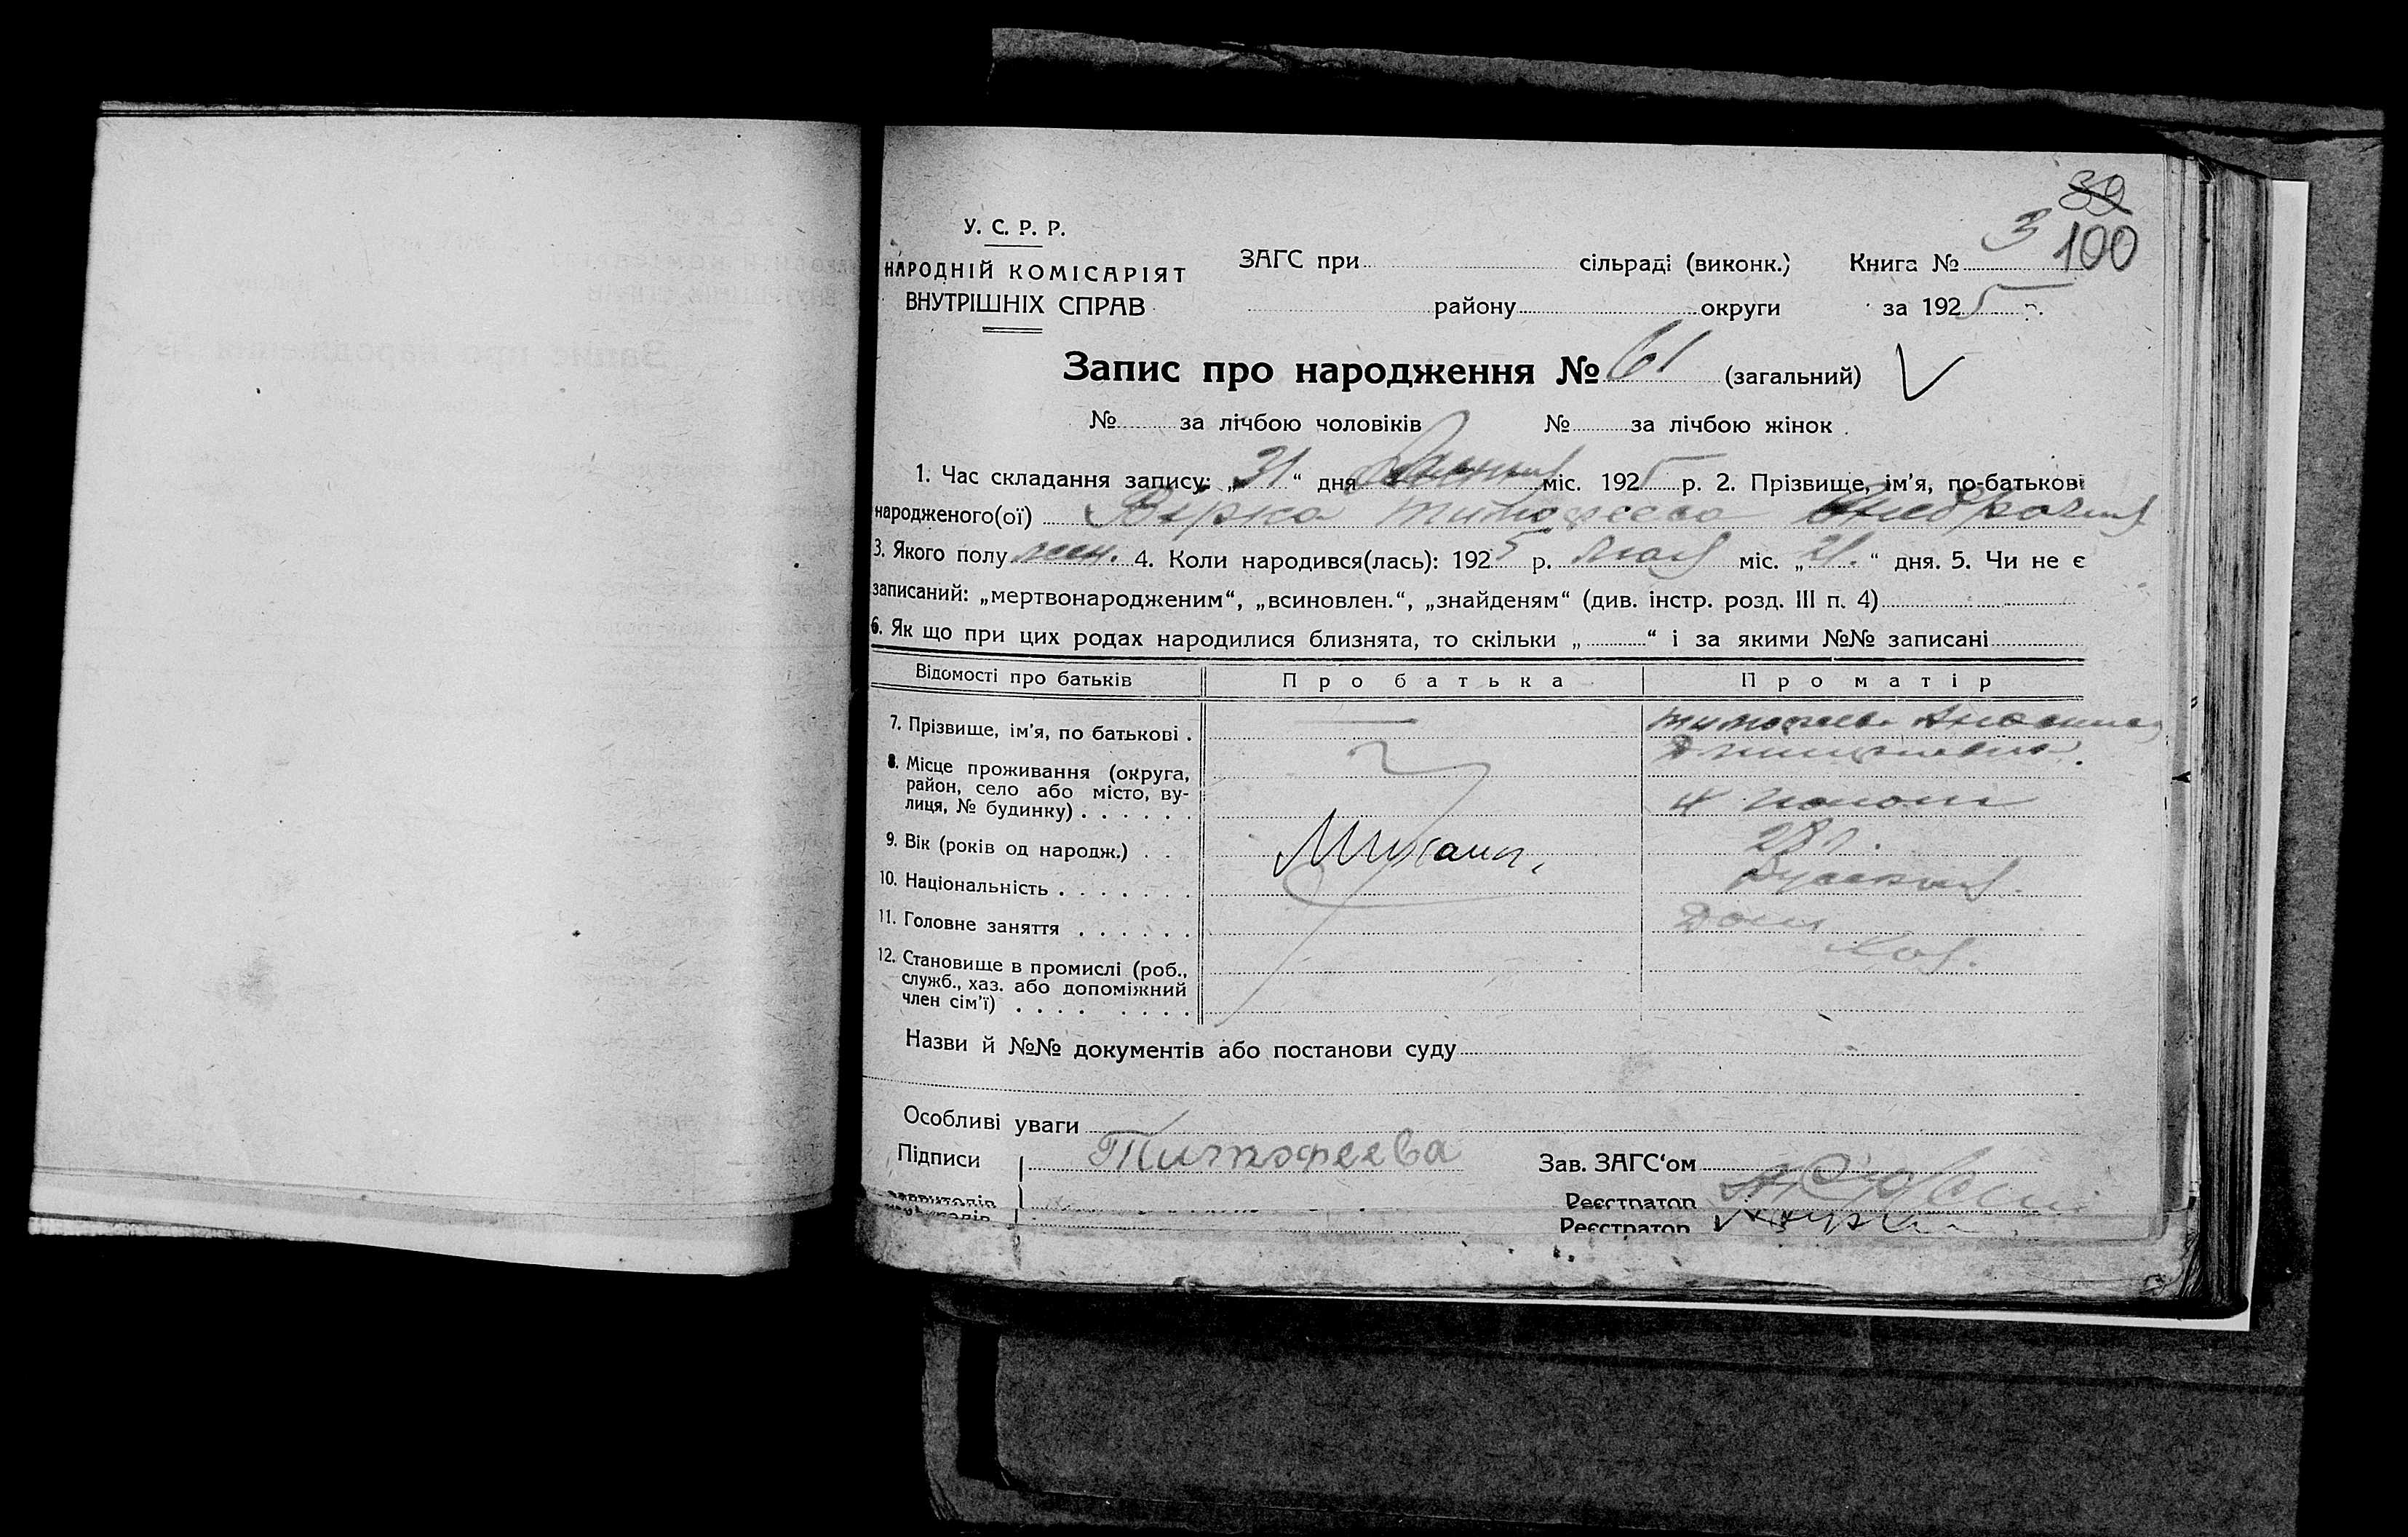 39
У. С. Р. Р.
НАРОДНІЙ КОМІСАРІЯТ
ВНУТРІШНІХ СПРАВ
ЗАГС при сільраді (виконк.) Книга № 3 100
району округи за 1925 р.
Запис про народження № 61 (загальний)
№ за лічбою чоловіків № за лічбою жінок
1. Час складання запису: „31“ дня міс. 1925 р. 2. Прізвище, ім'я, по-батькові
народженого(ої) Тимофеева Внебрачная
3. Якого полу жен. 4. Коли народився(лась): 1925 р. міс. „21.“ дня. 5. Чи не є
записаний: „мертвонародженим“, „всиновлен.“, „знайденям“ (див. інстр. розд. III п. 4)
6. Як що при цих родах народилися близнята, то скільки „ “ і за якими №№ записані
Відомості про батьків Про батька Про матір
7. Прізвище, ім'я, по батькові . Тимофеева
8. Місце проживання (округа,
район, село або місто, ву-
лиця, № будинку) . . . . . .
9. Вік (років од народж.) . . 28 л.
10. Національність . . . . . . . Русская.
11. Головне заняття . . . . . . Дом
12. Становище в промислі (роб., хоз.
служб., хаз. або допоміжний
член сім'ї) . . . . . . . .
Назви й №№ документів або постанови суду
Особливі уваги
Підписи Тимофеева Зав. ЗАГС'ом
Реєстратор
Реєстратор